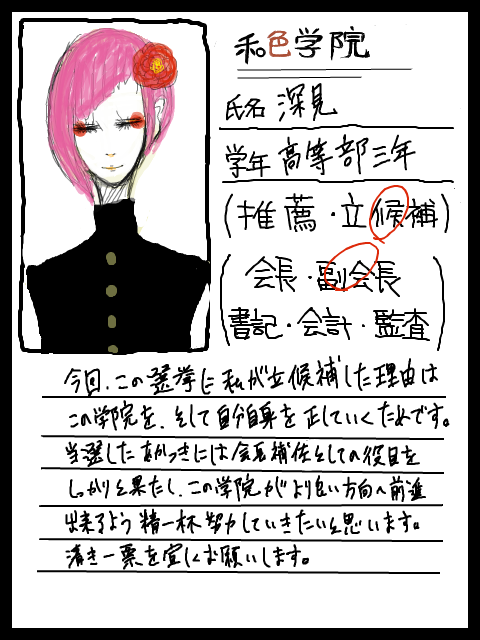 和色学院
氏名 深見
学年 高等部三年
(推薦・立候補)
(会長・副会長
書記・会計・監査)
今回、この選挙に私が立候補した理由は
この学院を、そして自分自身を正していくためです。
当選したあかつきには会長補佐としての役目を
しっかりと果たし、この学院がより良い方向へ前進
出来るよう精一杯努力していきたいと思います。
清き一票を宜しくお願いします。